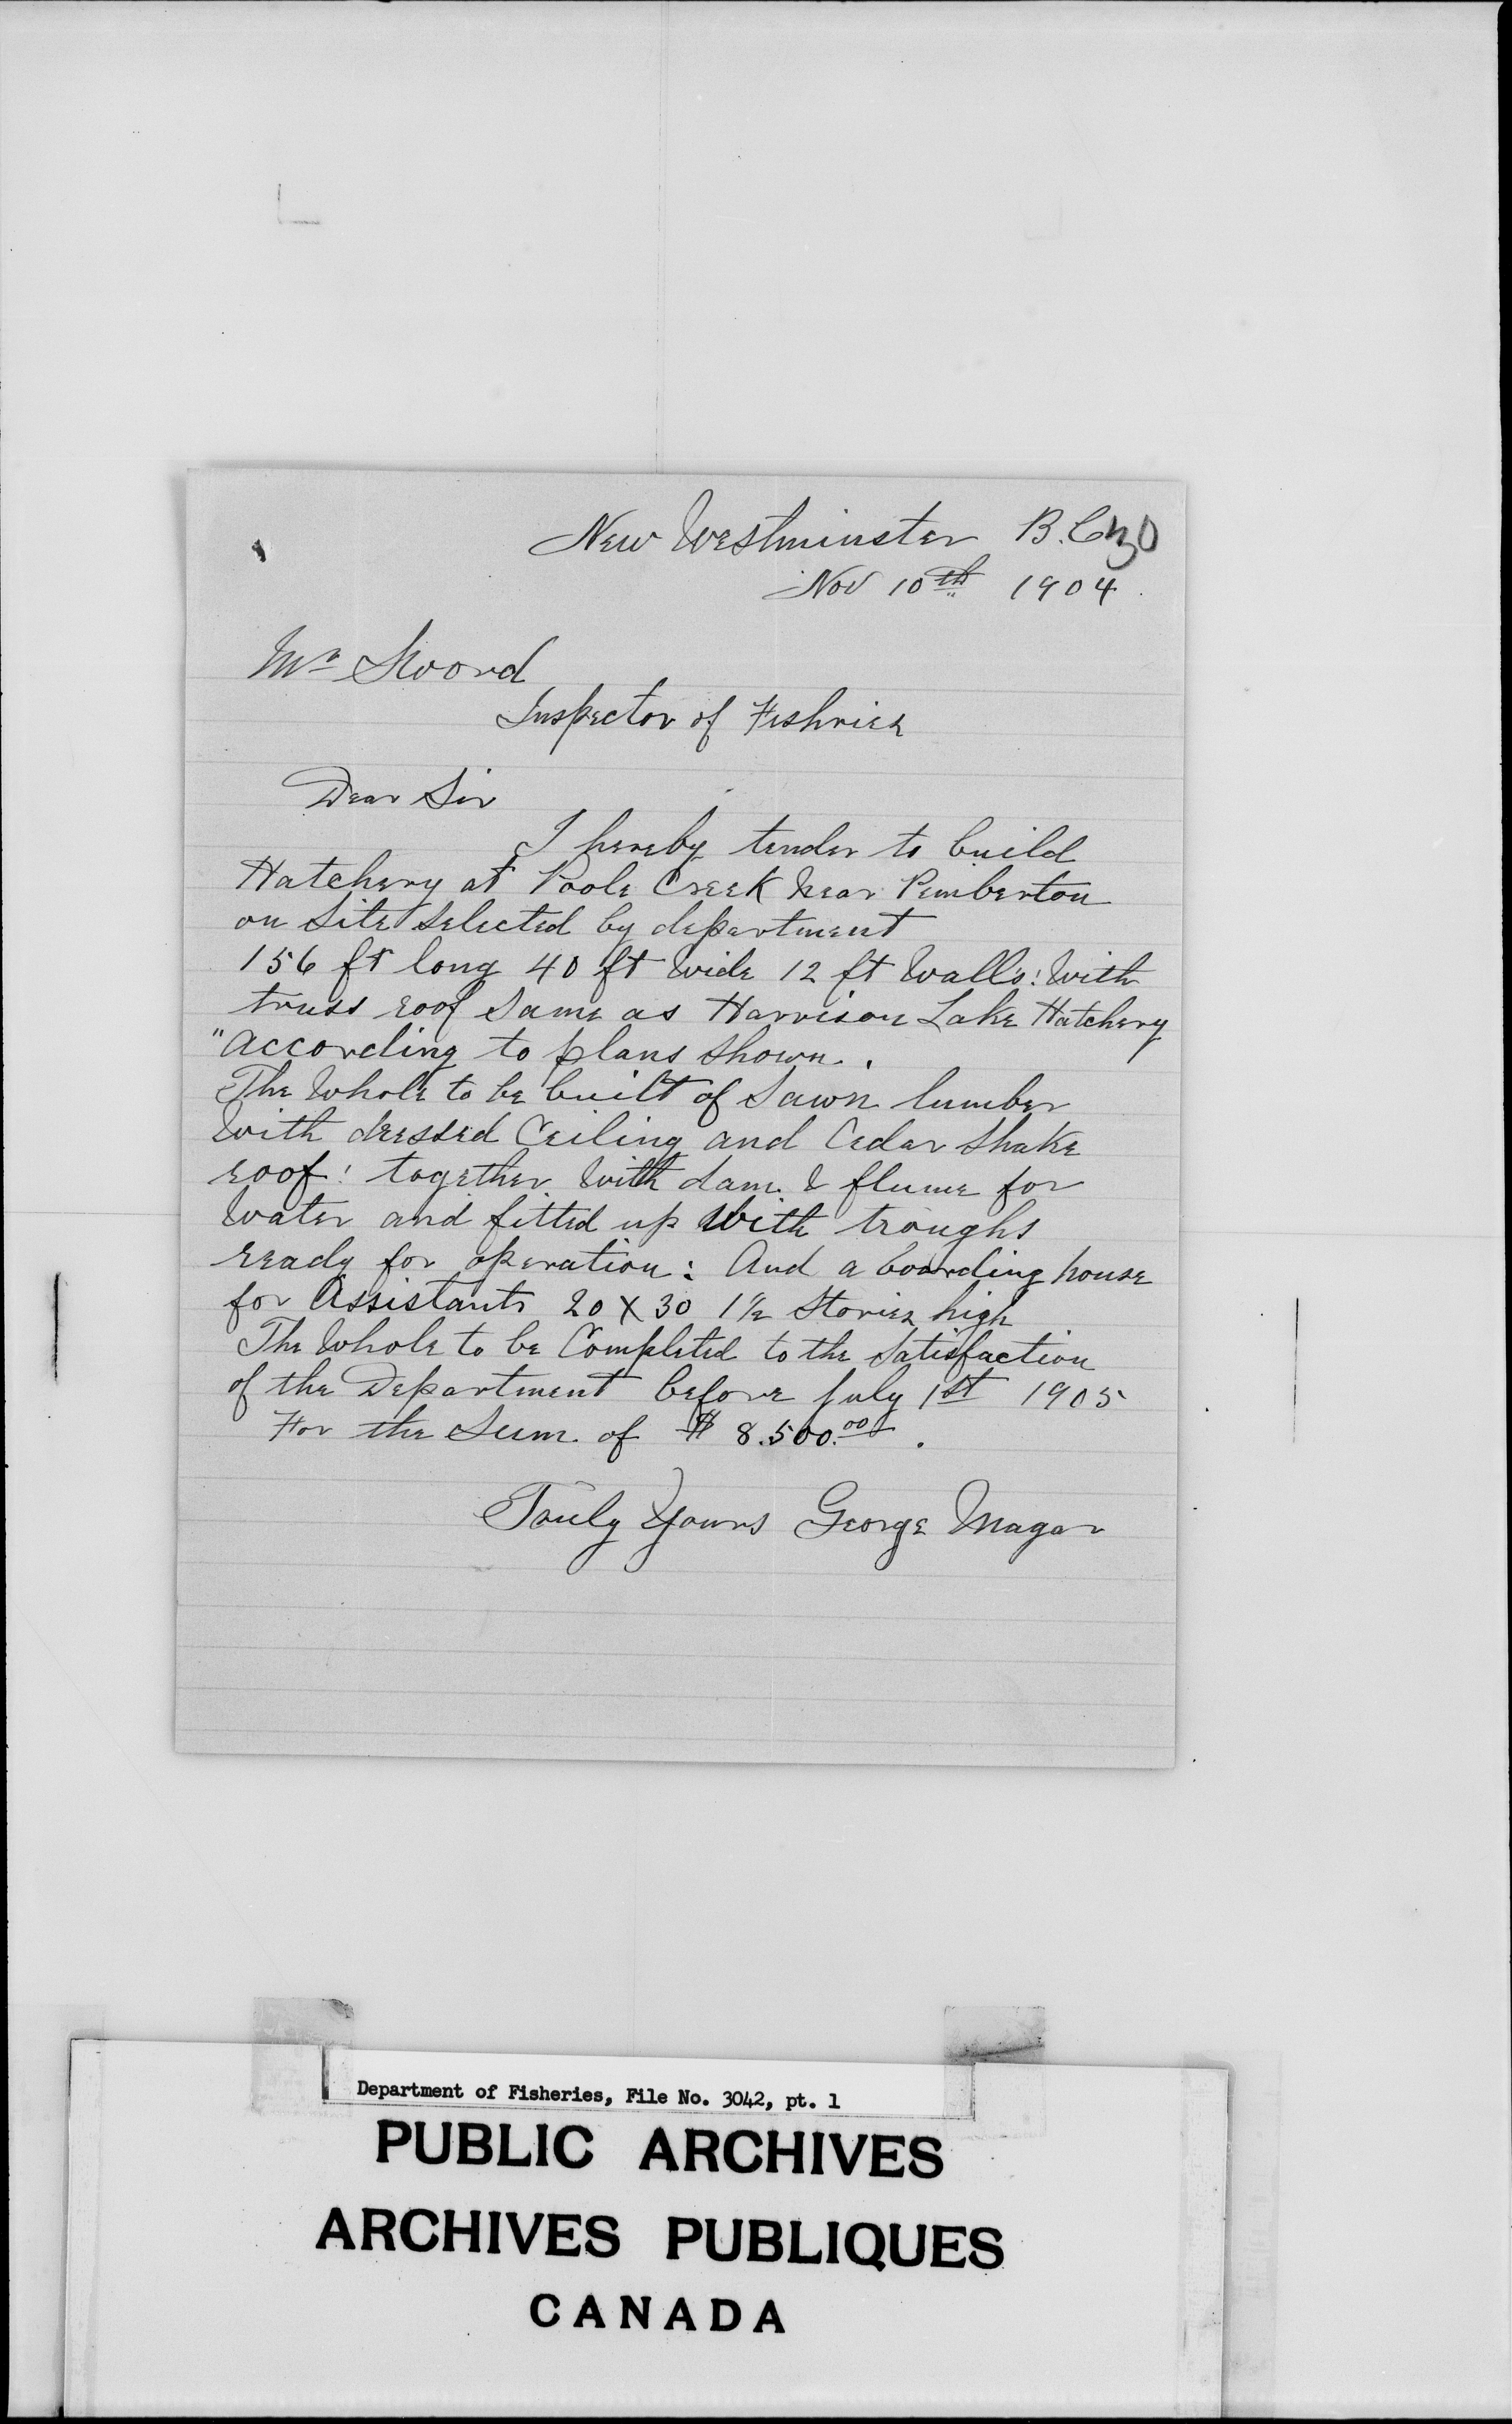 New Westminster B.C.
30
Nov 10th 1904.
Mr Sword
Inspector of Fishries
Dear Sir
I hereby tender to build
Hatchery at Poole Creek near Pemberton
on Site Selected by department
156 ft long 40 ft Wide 12 ft Walls: With
truss roof Same as Harrison Lake Hatchery
"According to plans Shown.
The Whole to be built of Sawn lumber
With dressed Ceiling and Cedar Shake
roof: together With dam & flume for
Water and fitted up With troughs
ready for operation: And a boarding house
for Assistants 20 X 30 1½ Stories high
The Whole to be Completed to the Satisfaction
of the Department before July 1st 1905
For the Sum of $ 8.500.00.
Truly Yours George Magar
Department of Fisheries, File No. 3042, pt. 1
PUBLIC ARCHIVES
ARCHIVES PUBLIQUES
CANADA